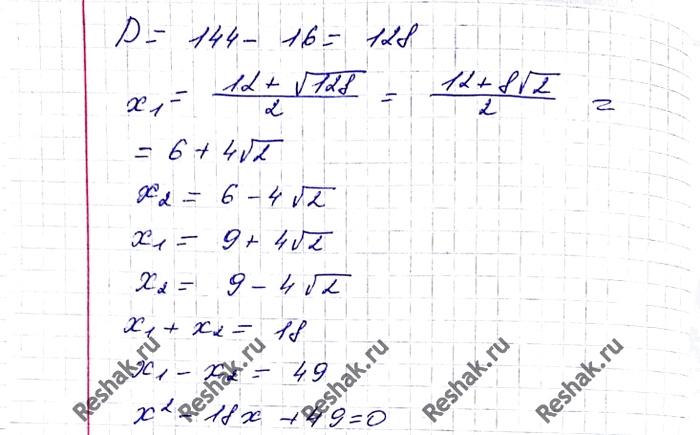 D = 144 - 16 = 128
x₁ = (12 + √128)/2 = (12 + 8√2)/2 =
= 6 + 4√2
x₂ = 6 - 4√2
x₁ = 9 + 4√2
x₂ = 9 - 4√2
x₁ + x₂ = 18
x₁ - x₂ = 49
x² - 18x + 49 = 0
Reshak.ru
Reshak.ru
Reshak.ru
Reshak.ru
Reshak.ru